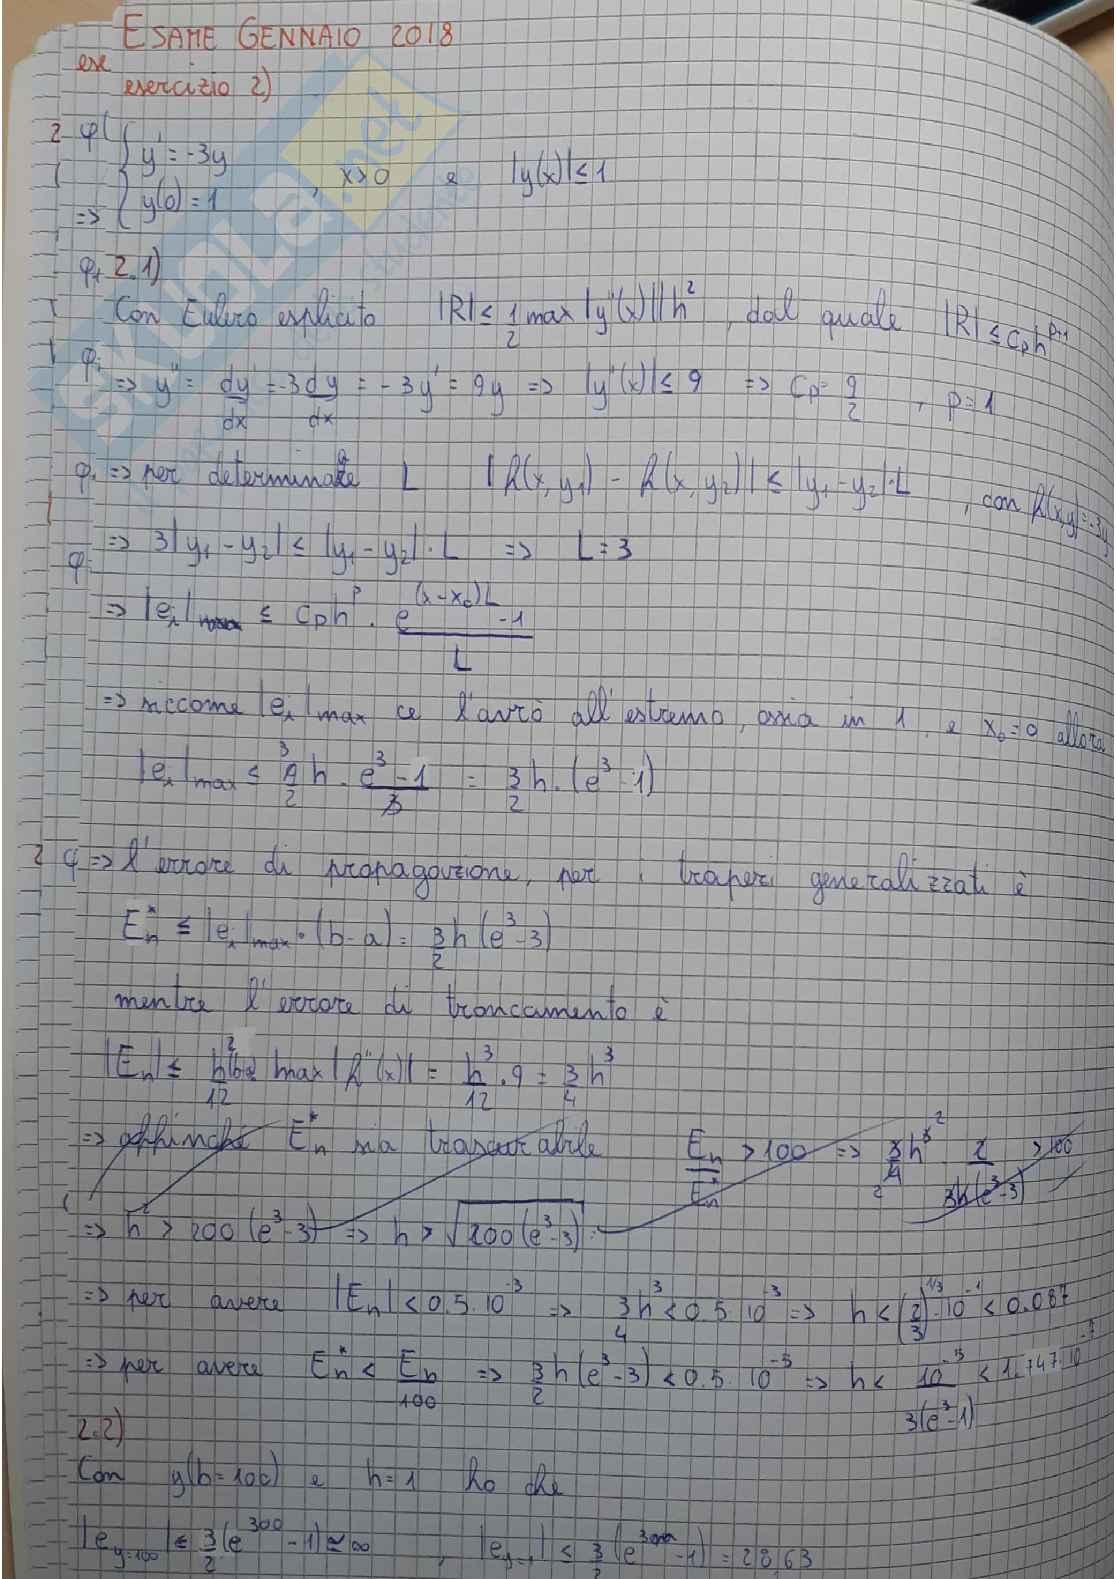 ESAME GENNAIO 2018
ese
esercizio 2)
y' = -3y
y(0) = 1 , x>0 e |y(x)| ≤ 1
2.1)
Con Eulero esplicito |R| ≤ 1/2 max |y''(x)| h² , dal quale |R| ≤ Cp h^(p+1)
=> y'' = dy'/dx = -3 dy/dx = -3y' = 9y => |y''(x)| ≤ 9 => Cp = 9/2 , p = 1
=> per determinare L |f(x, y₁) - f(x, y₂)| ≤ |y₁ - y₂| · L , con f(x,y) = -3y
=> 3|y₁ - y₂| ≤ |y₁ - y₂| · L => L = 3
=> |e_i| ≤ Cp h^p · (e^((x-x₀)L) - 1)/L
=> siccome |e_i|max ce l'avrò all'estremo, ossia in 1, e x₀ = 0 allora
|e_i|max ≤ 9/2 h · (e³ - 1)/3 = 3/2 h · (e³ - 1)
=> l'errore di propagazione, per i trapezi generalizzati è
En* ≤ |e_i|max · (b-a) = 3/2 h (e³ - 3)
mentre l'errore di troncamento è
|En| ≤ h²/12 max |f''(x)| = h³/12 · 9 = 3/4 h³
=> affinché En* sia trascurabile En/En* > 100 => 3/4 h³ 2/(3h(e³-3)) > 100
=> h² > 200 (e³ - 3) => h > √(200(e³ - 3))
=> per avere |En| < 0.5 · 10^-3 => 3/4 h³ < 0.5 · 10^-3 => h < (2/3)^(1/3) · 10^-1 < 0.087
=> per avere En* < En/100 => 3/2 h (e³ - 3) < 0.5 · 10^-5 => h < 10^-5/(3(e³ - 1)) < 1.747 · 10
2.2)
Con y(b=100) e h = 1 ho che
|e y=100| ≤ 3/2 (e^300 - 1) ≃ ∞ , |e y=1| ≤ 3/2 (e³ - 1) = 28,63
SKUOLA.net